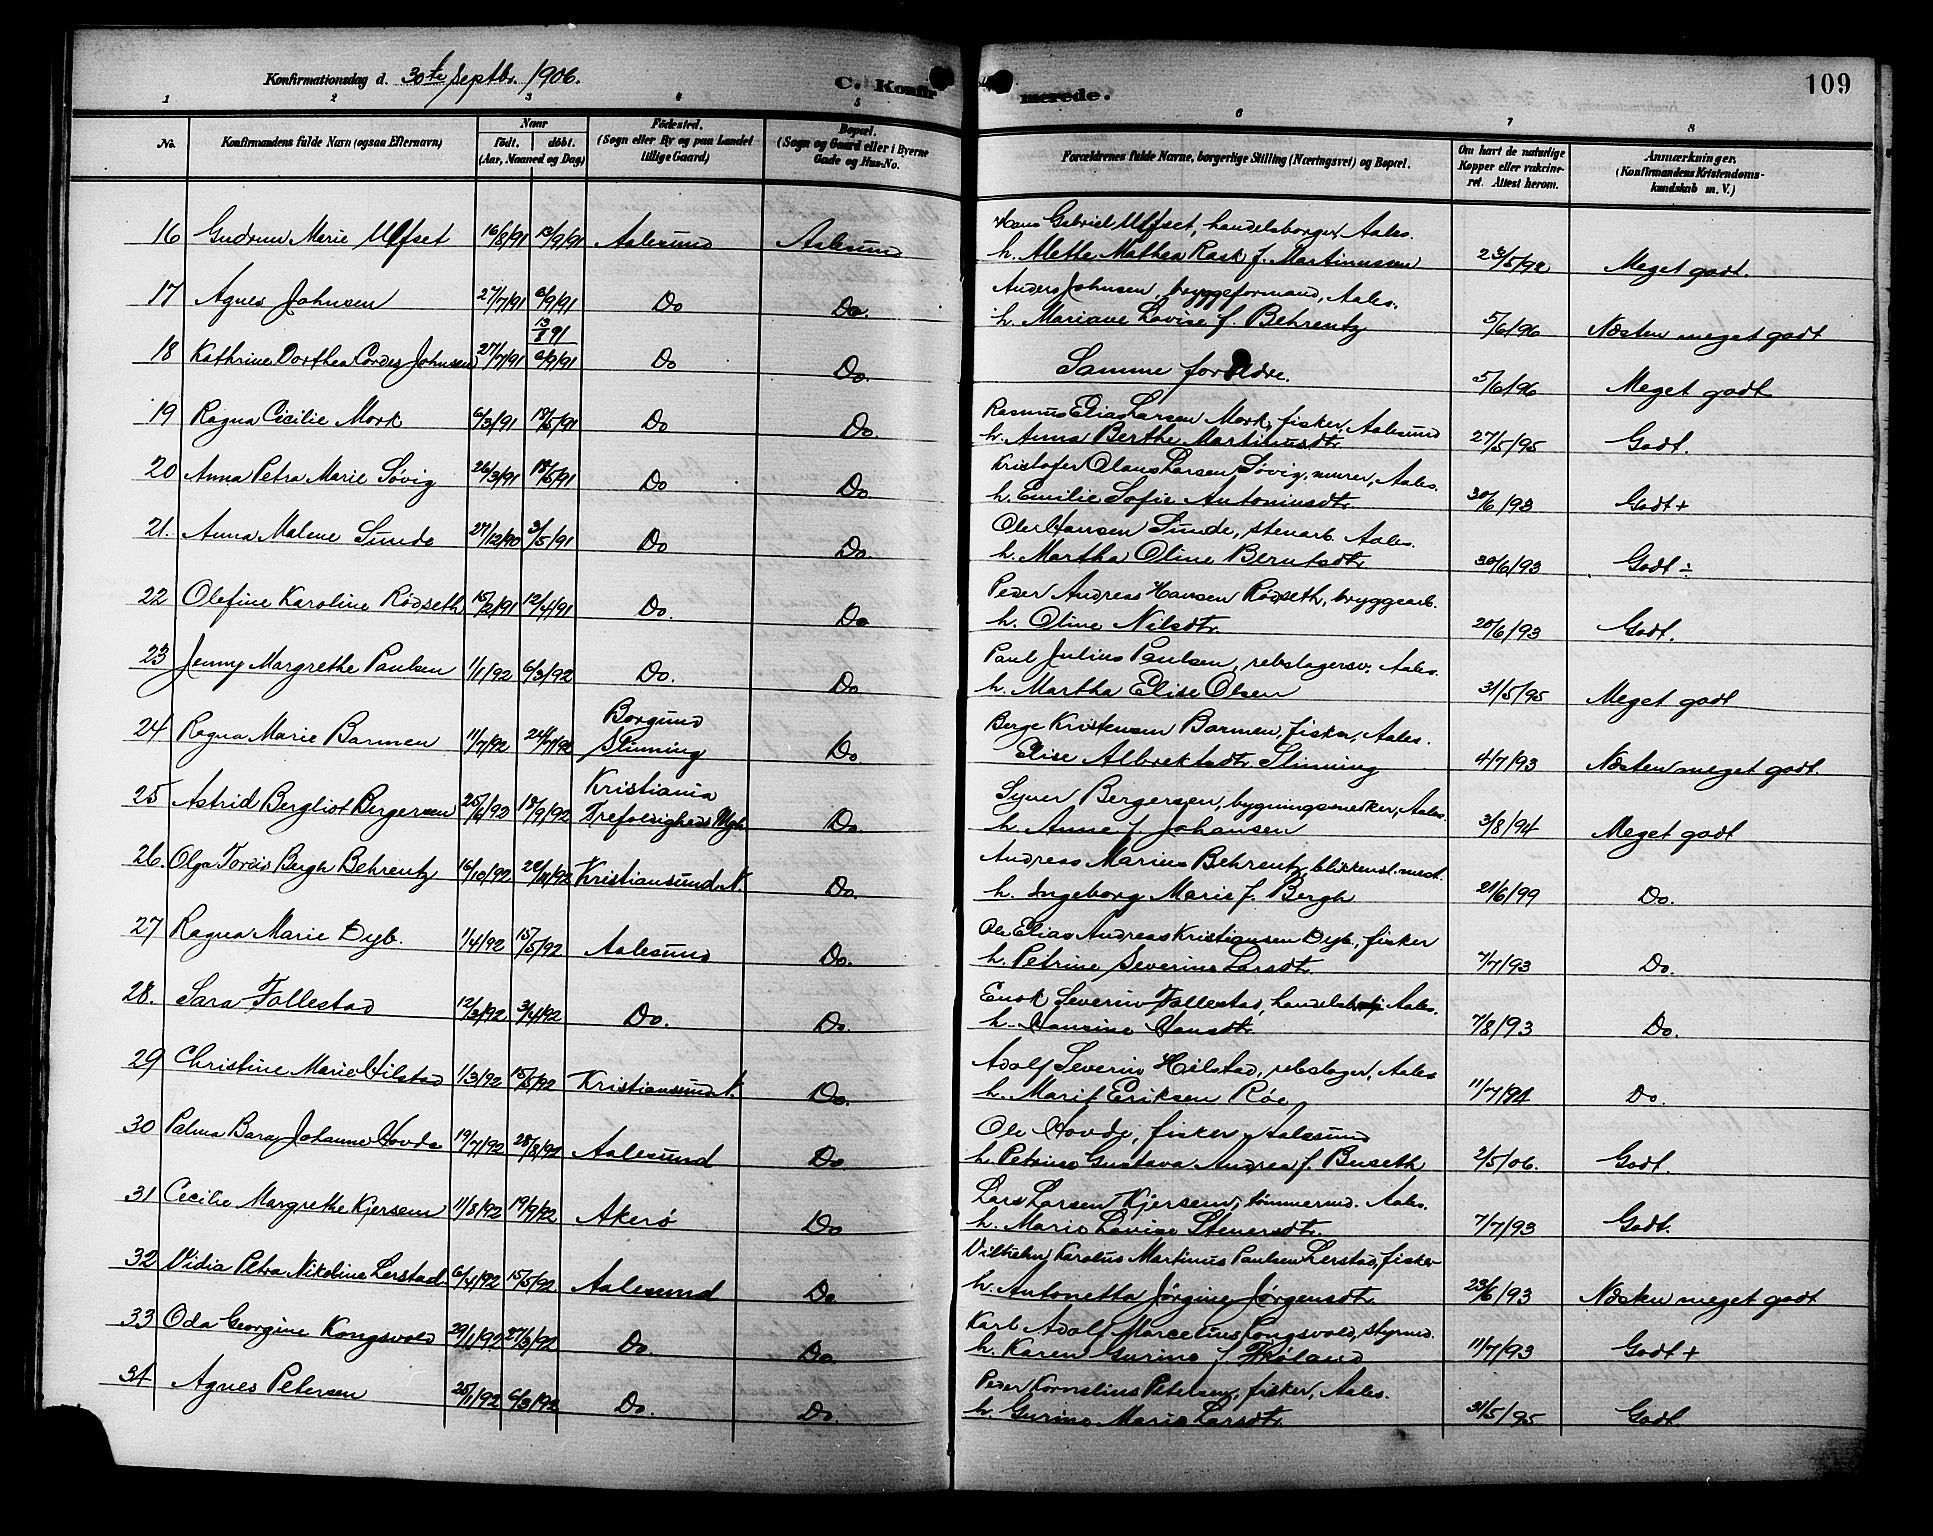 Konfirmationsdag d. 30te Septbr. 1906.
C. Konfirmerede.
109
1 2 3 4 5 6 7 8
No. Konfirmandens fulde Navn (ogsaa Efternavn) Naar født. døbt. (Aar, Maaned og Dag) Fødested. (Sogn eller By og paa Landet tillige Gaard) Bopæl. (Sogn og Gaard eller i Byerne Gade og Hus-No. Forældrenes fulde Navne, borgerlige Stilling (Næringsvei) og Bopæl. Om havt de naturlige Kopper eller vakcineret. Attest herom. Anmærkninger. (Konfirmandens Kristendomskundskab m. V.)
16 Gudrun Marie Ulfset 16/8/91 13/9/91 Aalesund Aalesund Hans Gabriel Ulfset, handelsborger, Aales.
h. Alethe Mathea Rask f. Martinussen Meget godt.
17 Agnes Johnsen 27/7/91 6/9/91 Do Do. Anders Johnsen, bryggeformand, Aales.
h. Mariane Lovise f. Behrentz 5/6/96 Næsten meget godt
18 Kathrine Dorthea Cordes Johnsen 27/7/91 13/8 91 6/9/91 Do Do. Samme forældre. 5/6/96 Meget godt
19 Ragna Cecilie Mork 6/3/91 18/5/91 Do Do. Rasmus Elias Larsen Mork, fisker, Aalesund
h. Anna Berthe Martinusdtr. 27/5/95 Godt.
20 Anna Petra Marie Søvig 26/3/91 18/5/91 Do Do Kristofer Olaus Larsen Søvig, murer, Aales.
h. Emilie Sofie Antoniusdtr. 30/6/93 Godt +
21. Anna Malene Sunde 27/12/90 3/5/91 Do Do Ole Hansen Sunde, stenarb. Aales.
h. Martha Oline Berntsdtr. 30/6/93 Godt ÷
22 Olefine Karoline Rødseth 15/2/91 12/4/91 Do. Do Peder Andreas Hansen Rødseth, bryggearb.
h. Oline Nilsdtr. 20/6/93 Godt.
23 Jenny Margrethe Paulsen 1/1/92 6/3/92 Do. Do Paul Julius Paulsen, rebslagersv. Aales.
h. Martha Elise Olsen 31/5/95 Meget godt
24 Ragna Marie Barmen 11/7/92 24/7/92 Borgund Slinning Do Berge Kristensen Barmen, fisker, Aales.
Elise Albrektsdtr. Slinning 4/7/93 Næsten meget godt.
25 Astrid Bergliot Bergersen 25/6/92 18/9/92 Kristiania Trefoldigheds Mgh Do. Syver Bergersen, bygningssnekker, Aales.
h. Anne f. Johansen 3/8/94 Meget godt
26. Olga Tordis Bergh Behrentz 16/10/92 Kristiansund N. Do. Andreas Marius Behrentz, blikkensl.mest.
h. Ingeborg Marie f. Bergh 21/6/99 Do.
27 Ragna Marie Dyb. 1/4/92 15/5/92 Aalesund Do. Ole Elias Andreas Kristiansen Dyb, fisker
h. Petrine Severine Larsdtr. 7/7/93 Do.
28. Sara Follestad 12/3/92 3/4/92 Do. Do. Enok Severin Follestad, Aales.
h. Hansine Hansdtr. 7/8/93 Do.
29 Christine Marie Hilstad 1/3/92 15/5/92 Kristiansund N. Do. Adolf Severin Hilstad, rebslager, Aales
h. Marit Eriksen Røe 11/7/94 Do.
30 Palma Bara Johanne Hovde 19/7/92 28/8/92 Aalesund Do Ole Hovde, fisker, Aalesund
h. Petrine Gustava Andrea f. Buseth 2/5/06. Godt.
31 Cecilie Margrethe Kjersem 11/8/92 19/9/92 Akerø Do Lars Larsen Kjersem, tømmermd. Aales.
h. Marie Lovise Stenersdtr. 7/7/93 Godt.
32 Vidia Petra Nikoline Lerstad 6/4/92 15/5/92 Aalesund Do Vilhelm Karolus Martinus Paulsen Lerstad, fisker
h. Antonetta Jørgine Jørgensdtr. 23/6/93 Næsten meget godt
33 Oda Georgine Kongsvold 29/1/92 27/3/92 Do. Do. Karl Adolf Marcelius Kongsvold, styrmd.
h. Karen Gurine f. 11/7/93 Godt +
34 Agnes Petersen 25/1/92 6/3/92 Do. Do. Peder Kornelius Petersen, fisker, Aales.
h. Gurine Marie Larsdtr. 31/5/95 Godt